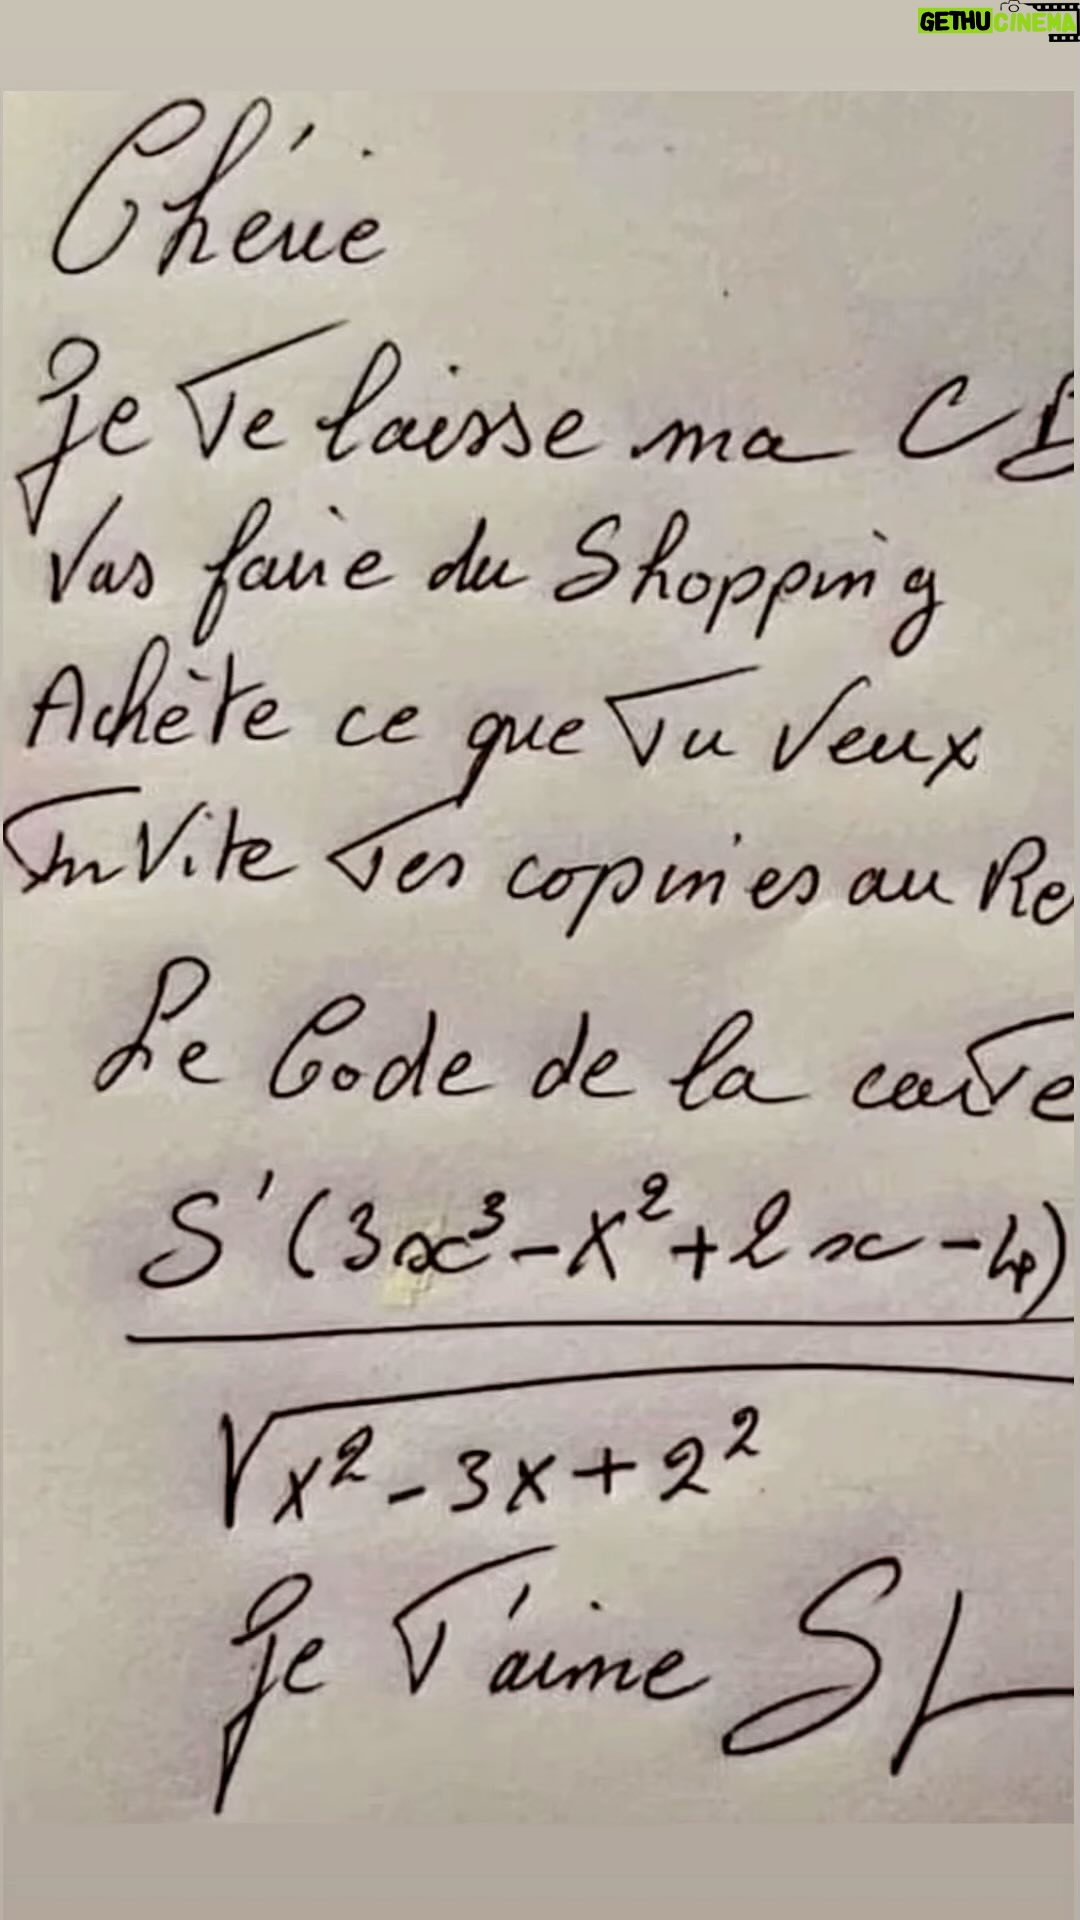 GETHUCINEMA
Chérie
Je Te laisse ma CB
Vas faire du Shopping
Achète ce que Tu Veux
InVite Tes copines au Re
Le Code de la carte
S'(3x³-x²+2x-4)
√x²-3x+2²
Je T'aime